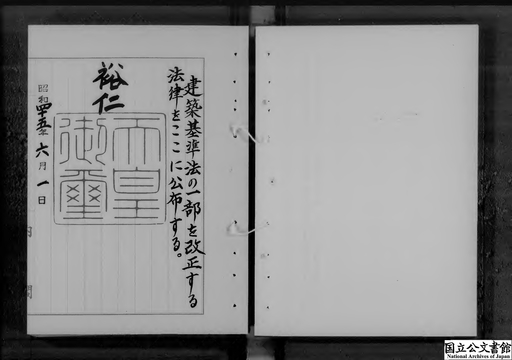 建築基準法の一部を改正する
法律をここに公布する。
裕仁
天皇
御璽
昭和四十五年六月一日
国立公文書館
National Archives of Japan